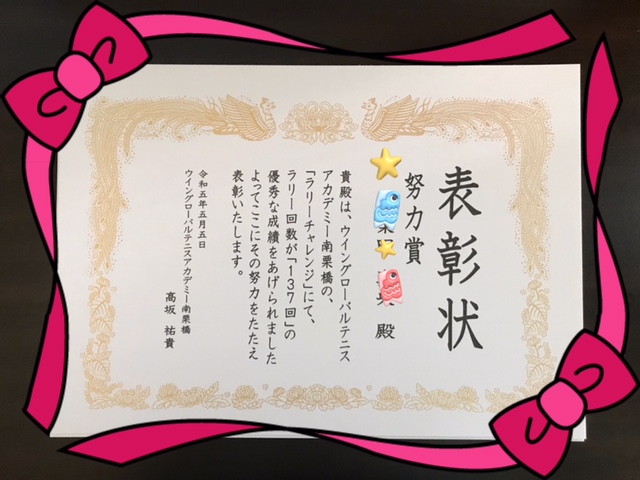 表彰状
努力賞
殿
貴殿は、ウイングローバルテニス
アカデミー南栗橋の、
「ラリーチャレンジ」にて、
ラリー回数が「137回」の
優秀な成績をあげられました
よってここにその努力をたたえ
表彰いたします。
令和五年五月五日
ウイングローバルテニスアカデミー南栗橋
高坂 祐貴